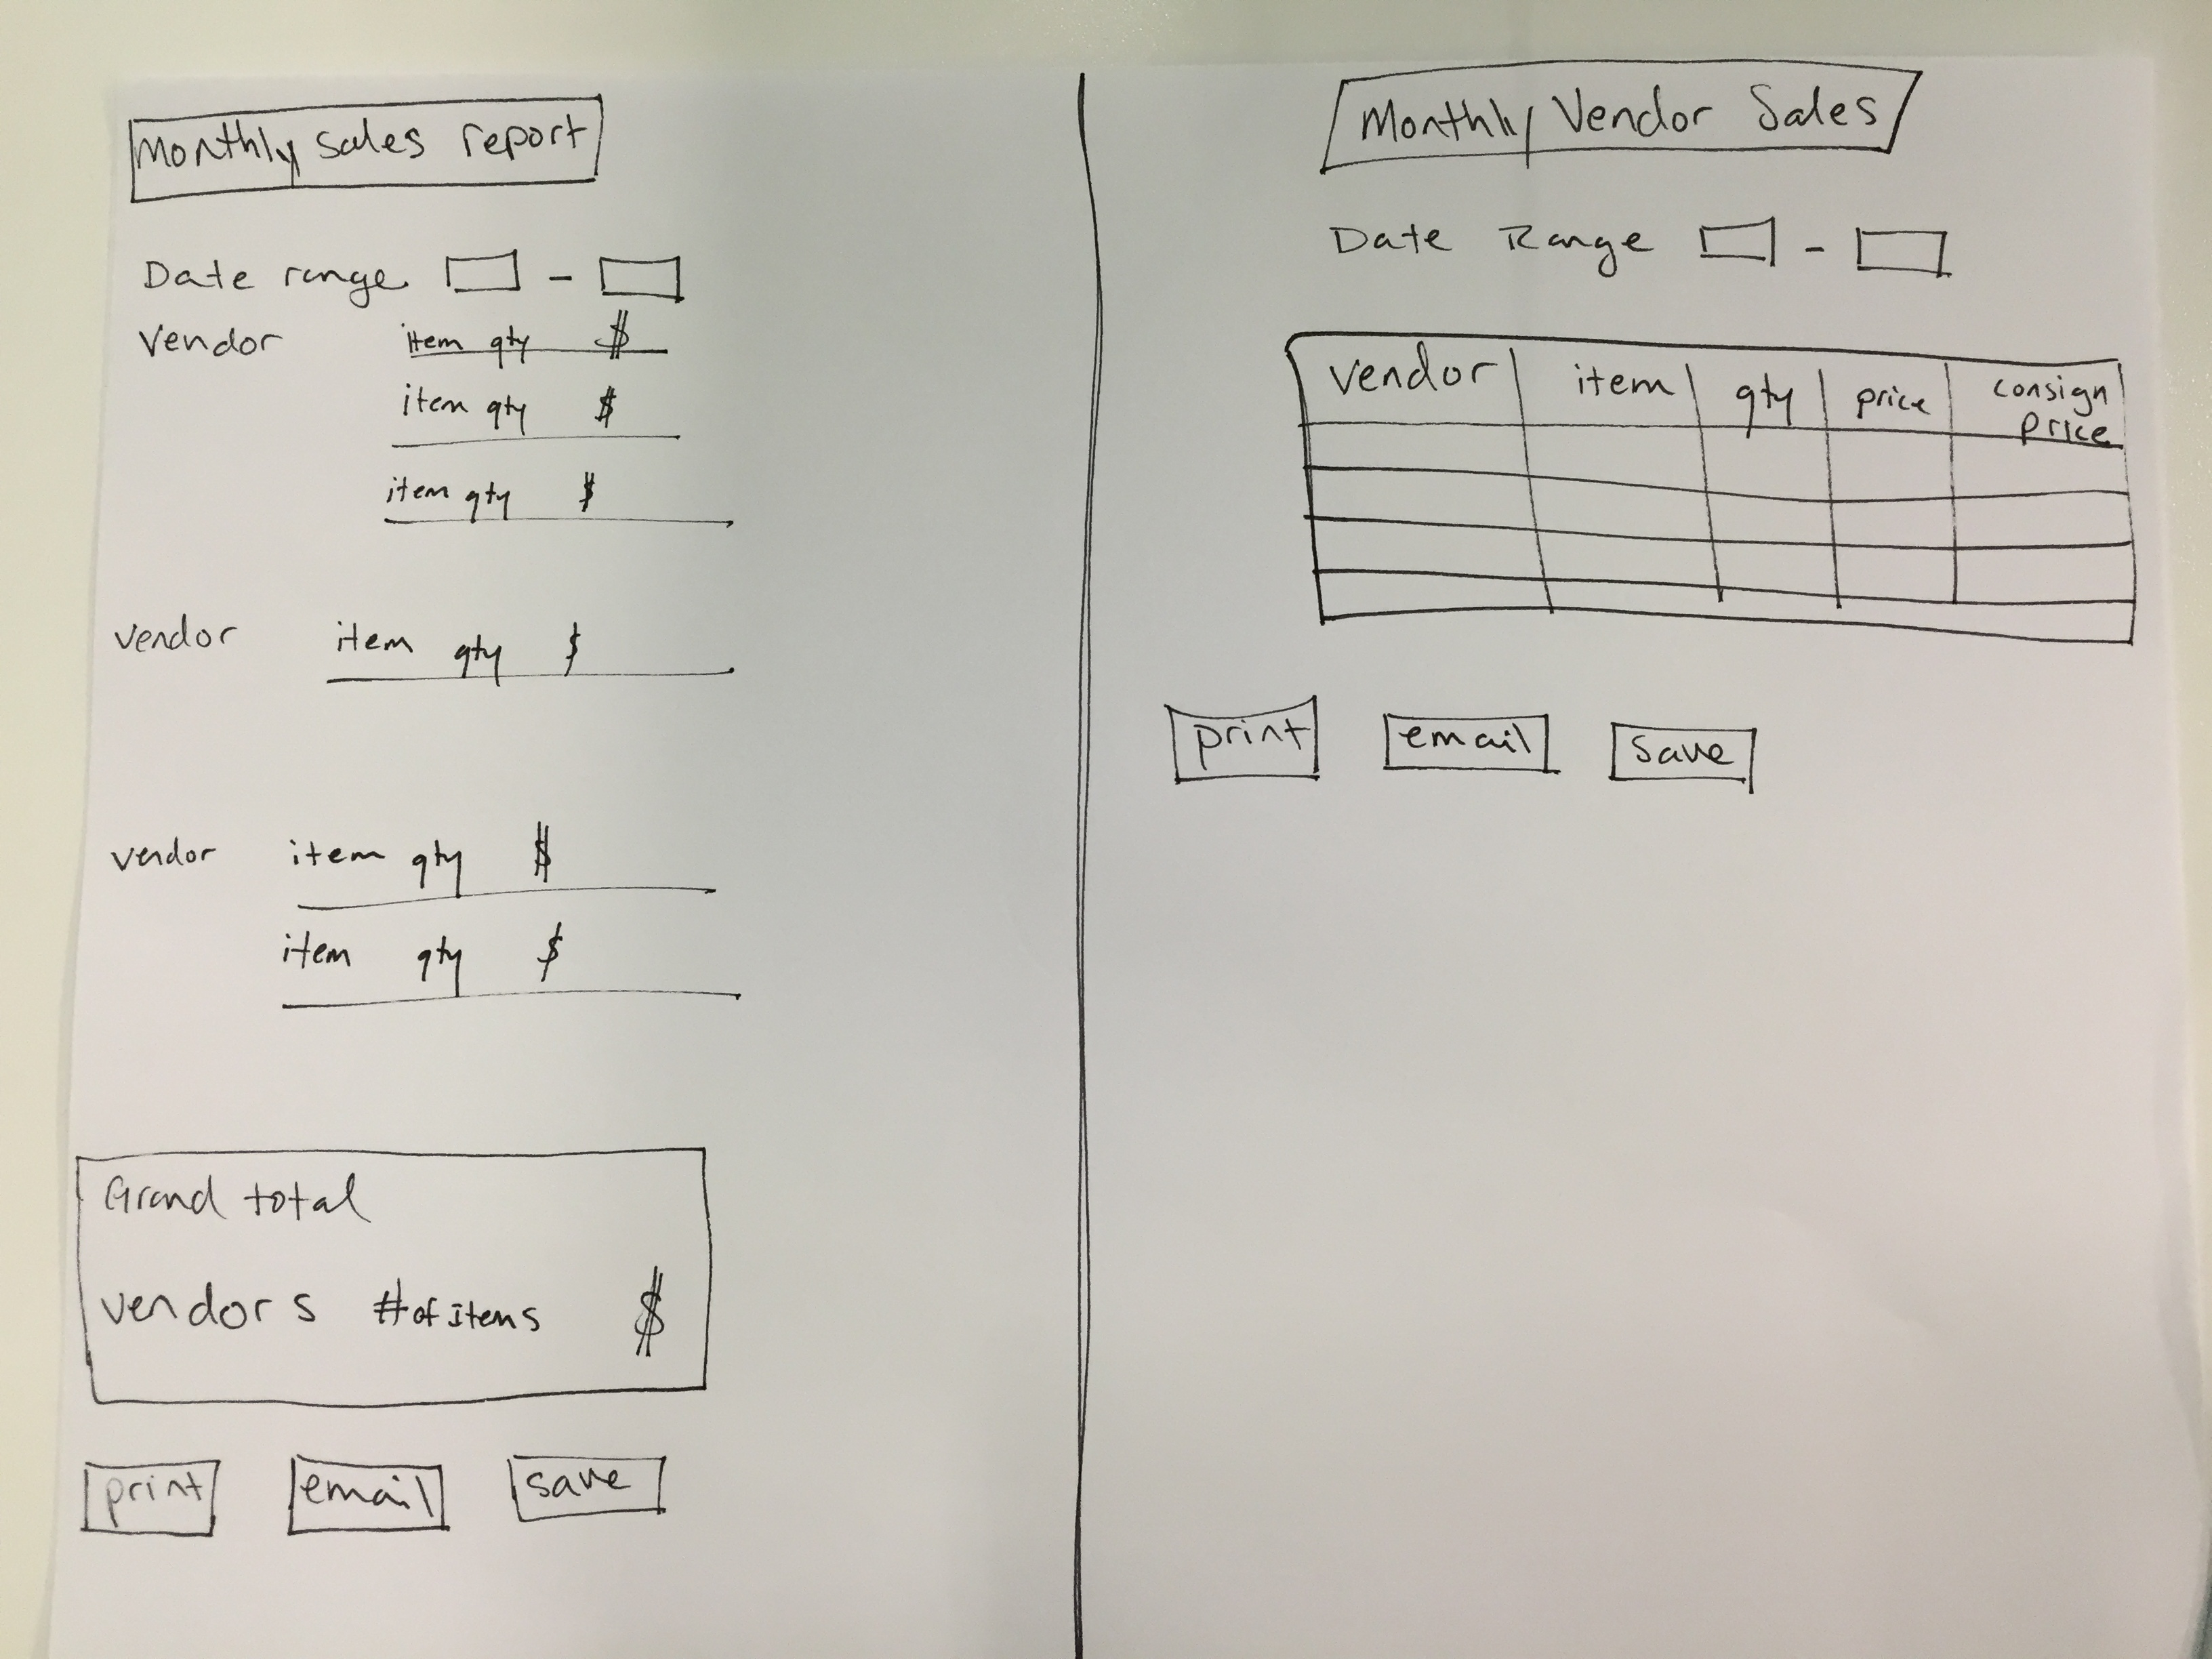 Monthly sales report
Date range -
Vendor item qty $
item qty $
item qty $
vendor item qty $
vendor item qty $
item qty $
Grand total
vendors #ofitems $
print email save
Monthly Vendor Sales
Date Range -
Vendor item qty price consign price
print email save